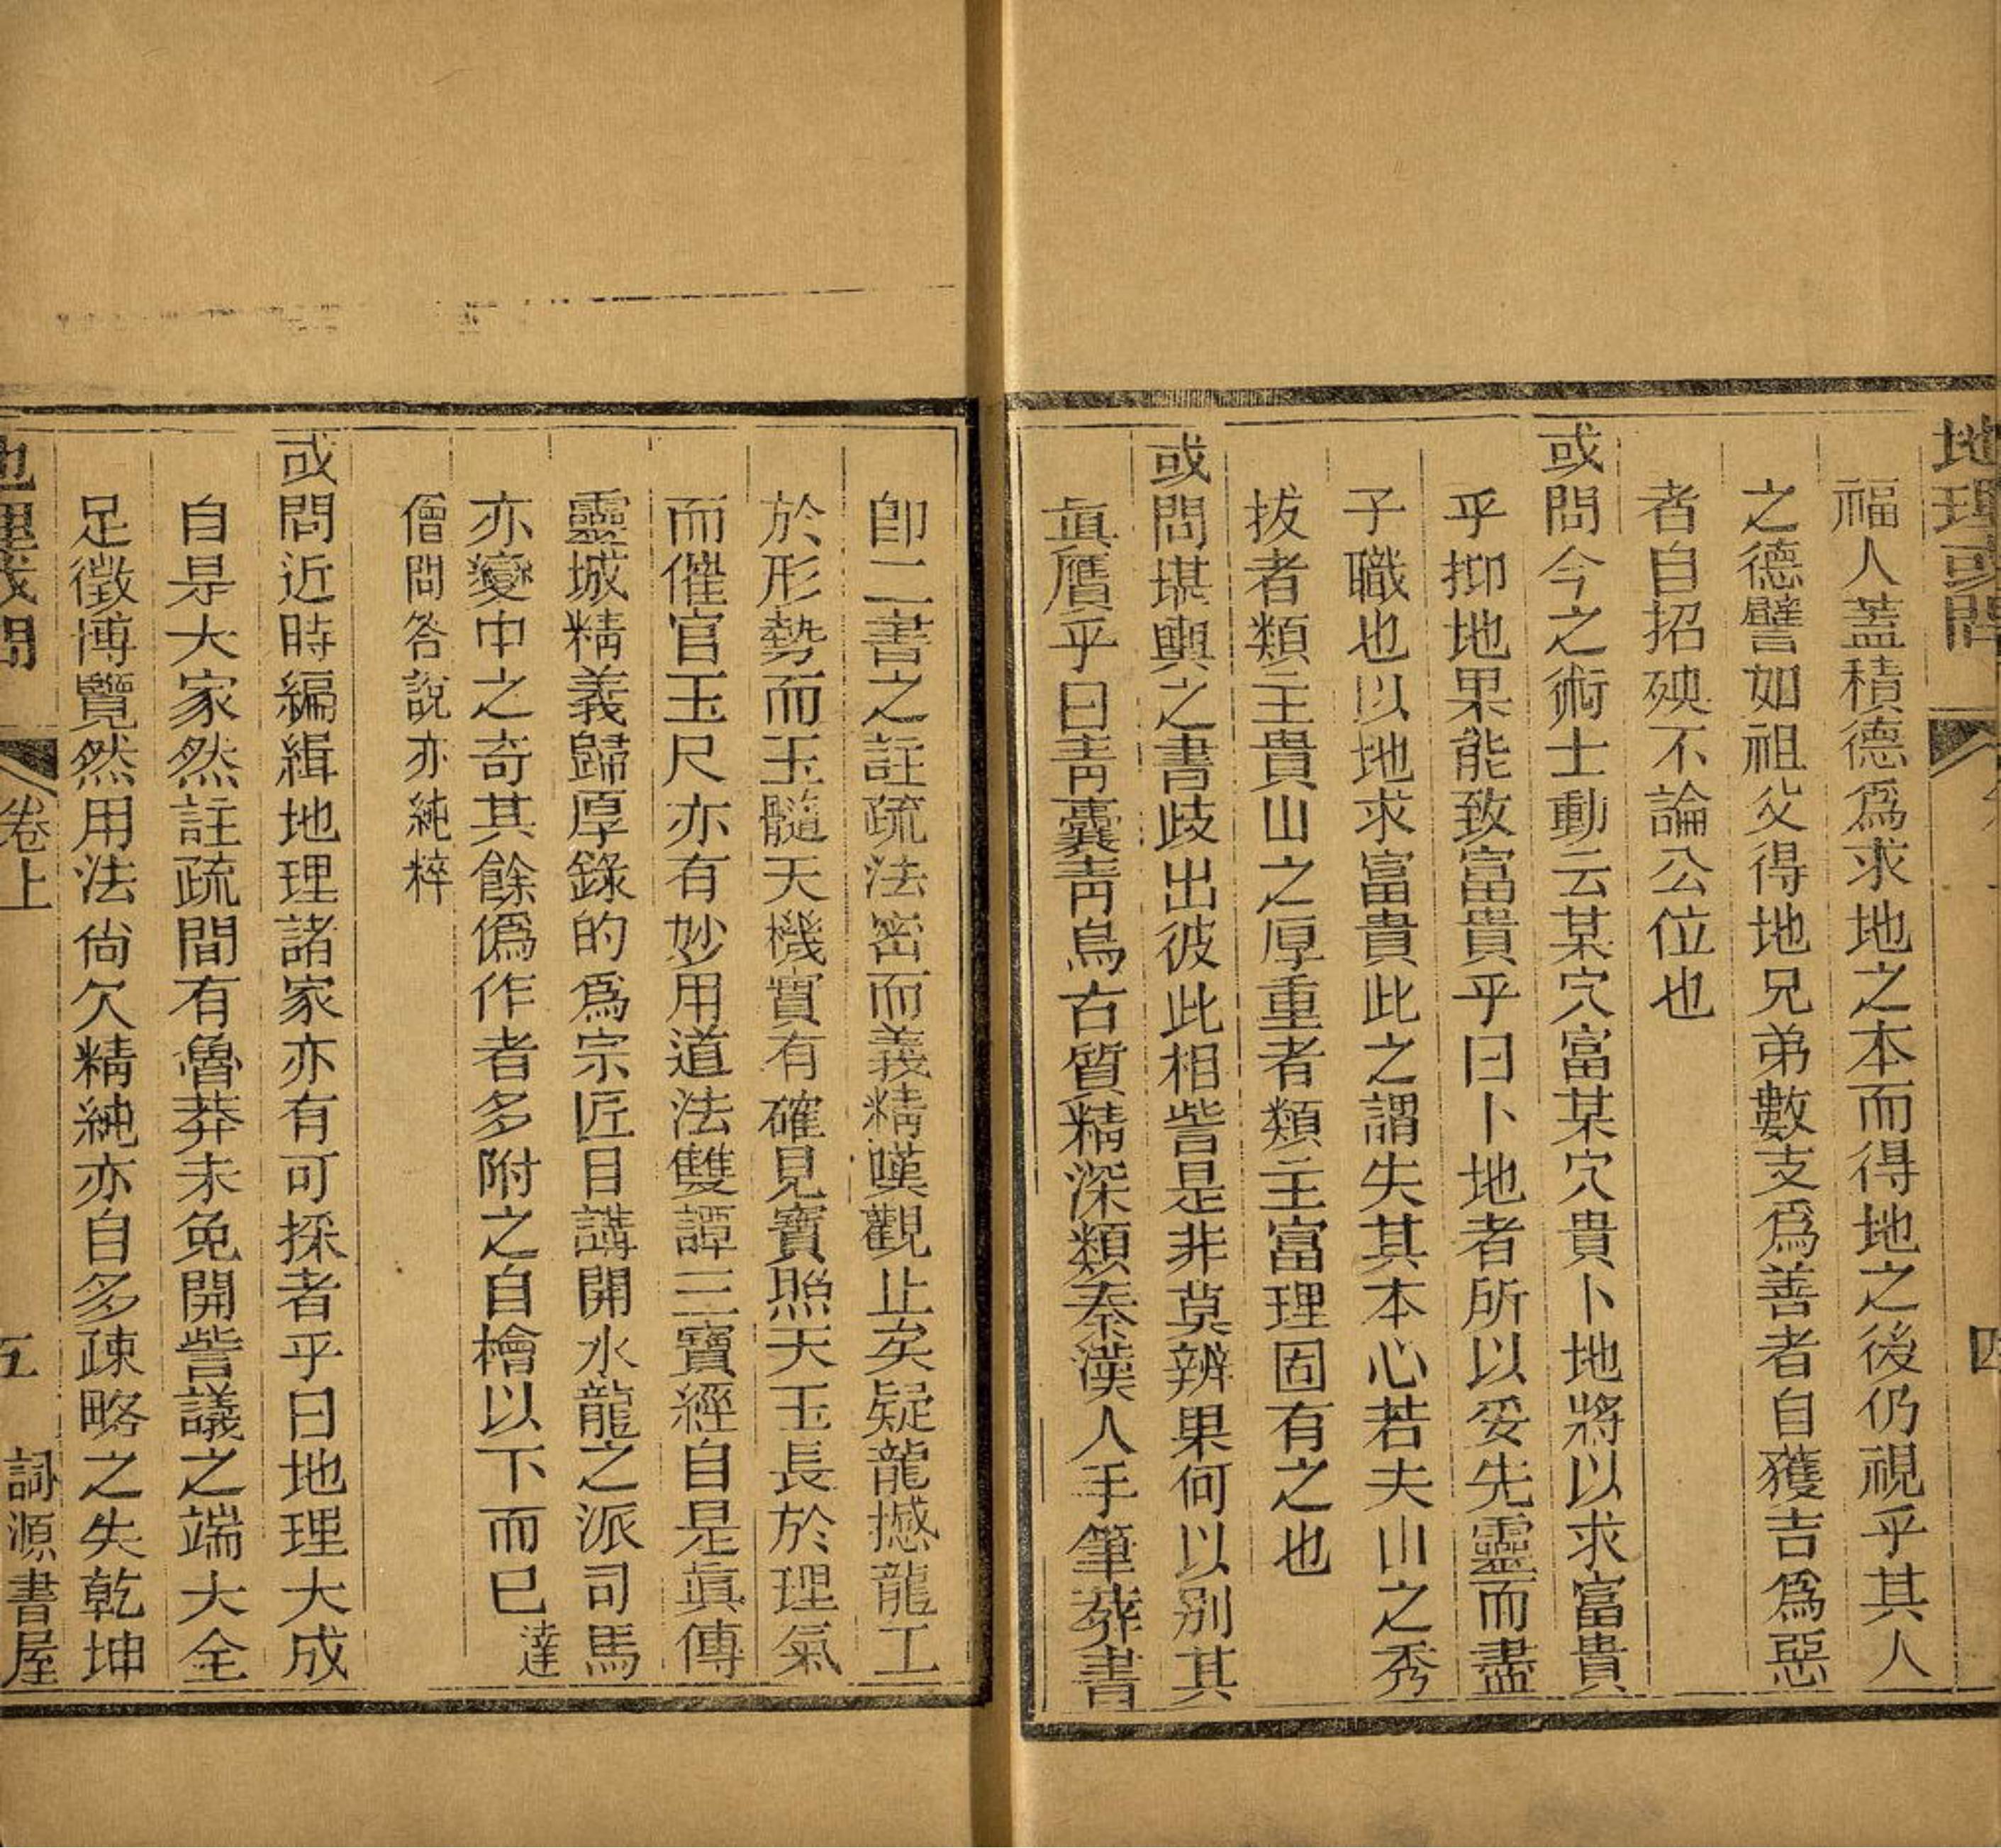 地理或問
四
福人蓋積德爲求地之本而得地之後仍視乎其人
之德譬如祖父得地兄弟數支爲善者自獲吉爲惡
者自招殃不論公位也
或問今之術士動云某穴富某穴貴卜地將以求富貴
乎抑地果能致富貴乎曰卜地者所以妥先靈而盡
子職也以地求富貴此之謂失其本心若夫山之秀
拔者類主貴山之厚重者類主富理固有之也
或問堪輿之書歧出彼此相訾是非莫辨果何以別其
眞贋乎曰靑囊靑烏古質精深類秦漢人手筆葬書
卽二書之註疏法密而義精嘆觀止矣疑龍撼龍工
於形勢而玉髓天機實有確見寶照天玉長於理氣
而催官玉尺亦有妙用道法雙譚三寶經自是眞傳
靈城精義歸厚錄的爲宗匠目講開水龍之派司馬
亦變中之奇其餘僞作者多附之自檜以下而已達
僧問答說亦純粹
或問近時編緝地理諸家亦有可採者乎曰地理大成
自是大家然註疏間有魯莽未免開訾議之端大全
足徵博覽然用法尙欠精純亦自多疎略之失乾坤
地理或問
卷上
五
詞源書屋